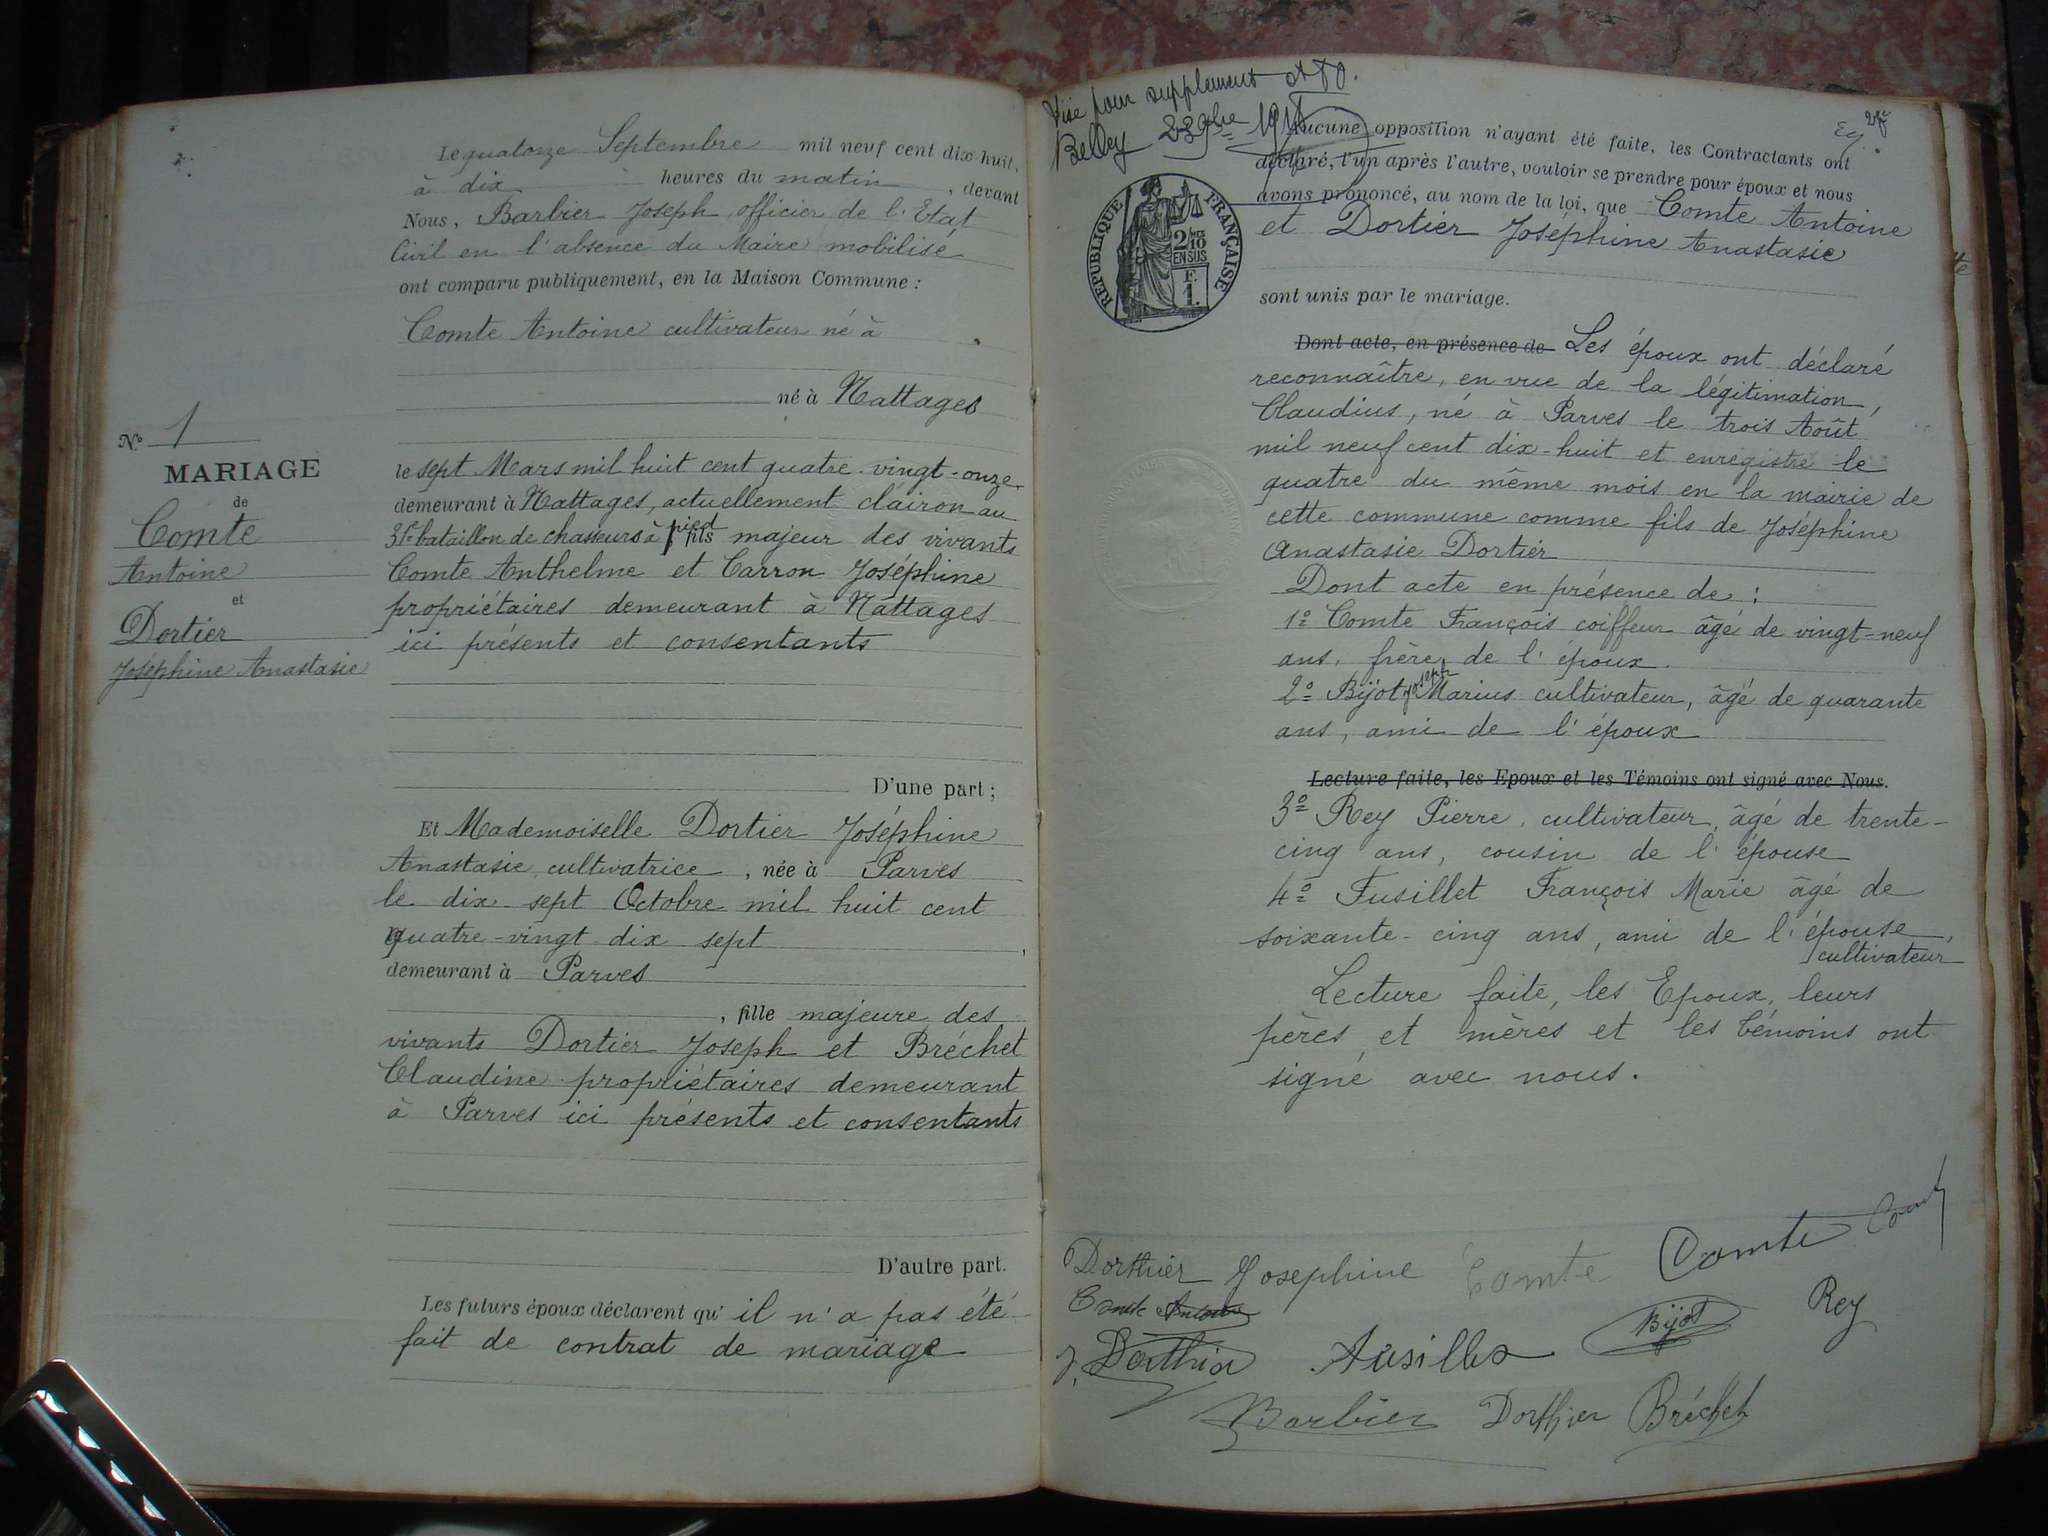 Le quatorze Septembre mil neuf cent dix-huit,
à dix heures du matin, devant
Nous, Barbier Joseph, officier de l'Etat
Civil en l'absence du Maire mobilisé
ont comparu publiquement, en la Maison Commune :
Comte Antoine cultivateur né à
né à Nattages
le sept Mars mil huit cent quatre-vingt-onze,
demeurant à Nattages, actuellement clairon au
31e bataillon de chasseurs à pied fils majeur des vivants
Comte Anthelme et Carron Joséphine
propriétaires demeurant à Nattages
ici présents et consentants
D'une part ;
Et Mademoiselle Dortier Joséphine
Anastasie, cultivatrice, née à Parves
le dix-sept Octobre mil huit cent
quatre-vingt-dix sept,
demeurant à Parves
, fille majeure des
vivants Dortier Joseph et Bréchet
Claudine propriétaires demeurant
à Parves ici présents et consentants
D'autre part.
Les futurs époux déclarent qu'il n'a pas été
fait de contrat de mariage
No 1
MARIAGE
de
Comte
Antoine
et
Dortier
Joséphine Anastasie
Visé pour supplément
Belley 23 9bre
Aucune opposition n'ayant été faite, les Contractants ont
déclaré, l'un après l'autre, vouloir se prendre pour époux et nous
avons prononcé, au nom de la loi, que Comte Antoine
et Dortier Joséphine Anastasie
sont unis par le mariage.
RÉPUBLIQUE FRANÇAISE
2/10
EN SUS
F.
1.
Dont acte, en présence de Les époux ont déclaré
reconnaître, en vue de la légitimation,
Claudius, né à Parves le trois Août
mil neuf cent dix-huit et enregistré le
quatre du même mois en la mairie de
cette commune comme fils de Joséphine
Anastasie Dortier
Dont acte en présence de :
1º Comte François coiffeur âgé de vingt-neuf
ans, frère de l'époux.
2º Bijot Joseph Marius cultivateur, âgé de quarante
ans, ami de l'époux
Lecture faite, les Epoux et les Témoins ont signé avec Nous.
3º Rey Pierre, cultivateur, âgé de trente-
cinq ans, cousin de l'épouse
4º Fusillet François Marie âgé de
soixante-cinq ans, ami de l'épouse,
cultivateur
Lecture faite, les Epoux, leurs
pères et mères et les témoins ont
signé avec nous.
Dorthier Josephine Comte Comte Comte
Comte Antoine Bijot Rey
J. Dorthier
Barbier Dorthier Bréchet